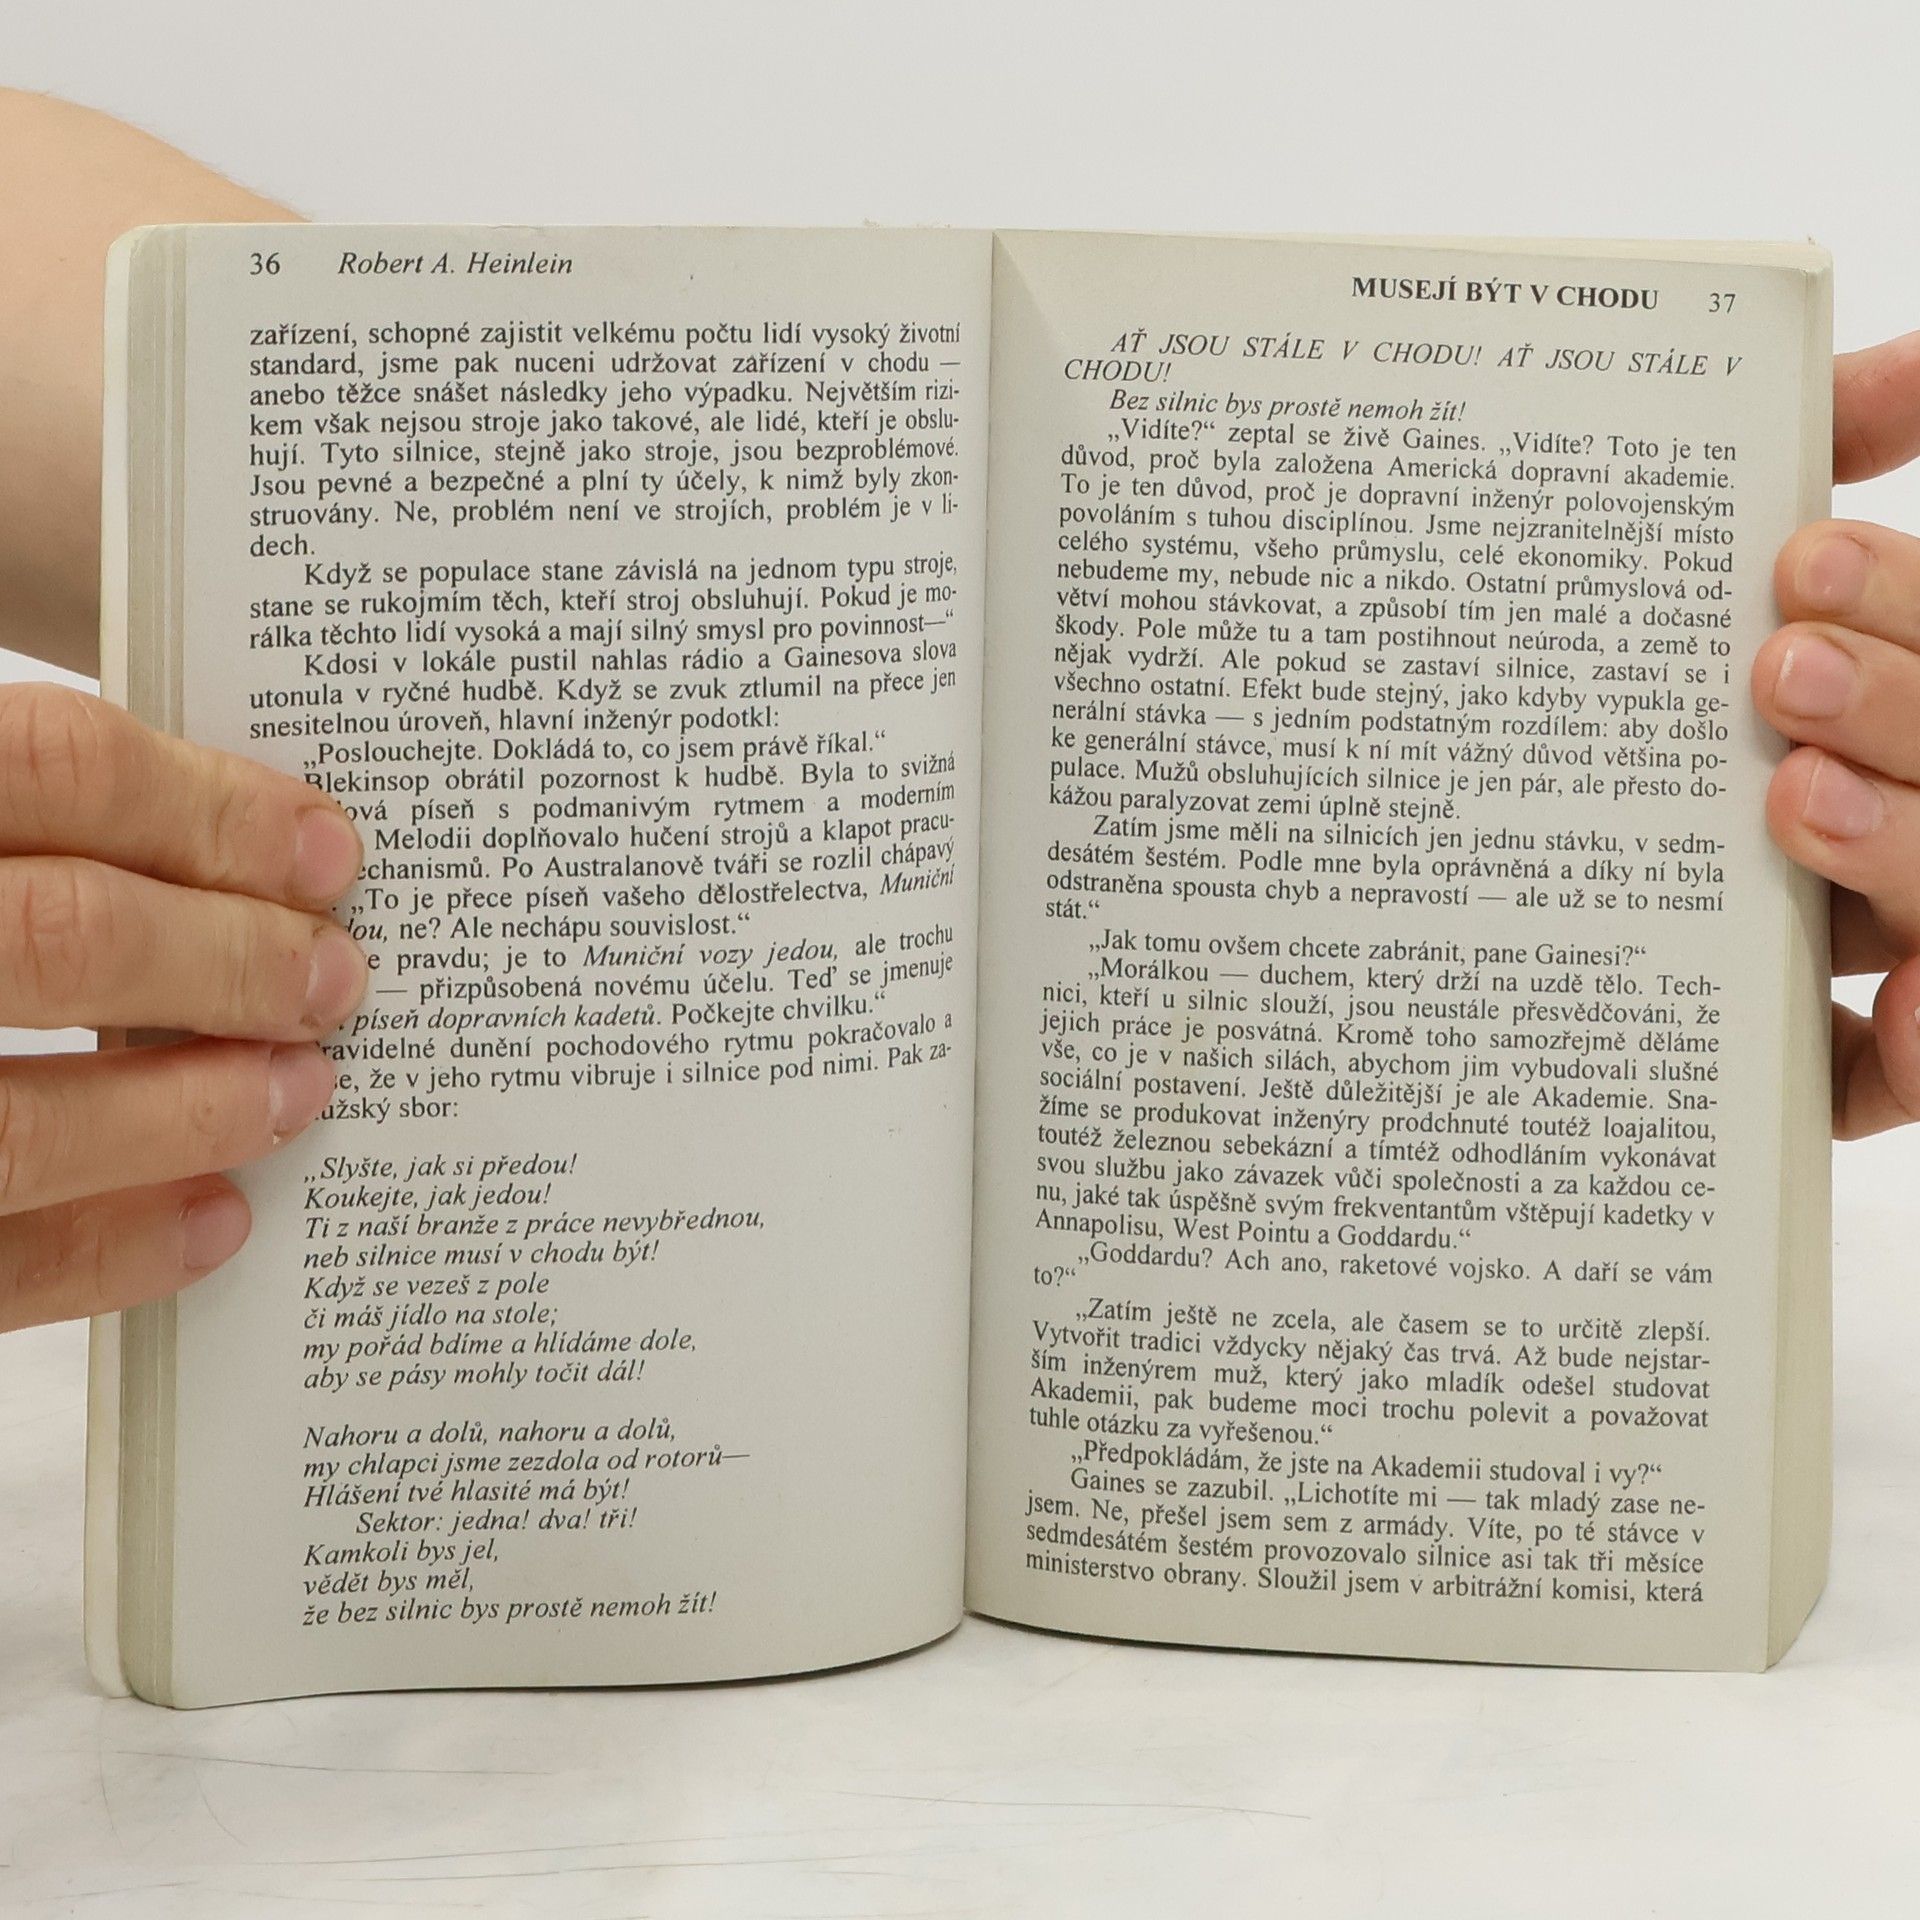 36 Robert A. Heinlein
zařízení, schopné zajistit velkému počtu lidí vysoký životní
standard, jsme pak nuceni udržovat zařízení v chodu —
anebo těžce snášet následky jeho výpadku. Největším rizi-
kem však nejsou stroje jako takové, ale lidé, kteří je obslu-
hují. Tyto silnice, stejně jako stroje, jsou bezproblémové.
Jsou pevné a bezpečné a plní ty účely, k nimž byly zkon-
struovány. Ne, problém není ve strojích, problém je v li-
dech.
Když se populace stane závislá na jednom typu stroje,
stane se rukojmím těch, kteří stroj obsluhují. Pokud je mo-
rálka těchto lidí vysoká a mají silný smysl pro povinnost—“
Kdosi v lokále pustil nahlas rádio a Gainesova slova
utonula v ryčné hudbě. Když se zvuk ztlumil na přece jen
snesitelnou úroveň, hlavní inženýr podotkl:
„Poslouchejte. Dokládá to, co jsem právě říkal.“
Blekinsop obrátil pozornost k hudbě. Byla to svižná
píseň s podmanivým rytmem a moderním
Melodii doplňovalo hučení strojů a klapot pracu-
echanismů. Po Australanově tváři se rozlil chápavý
„To je přece píseň vašeho dělostřelectva, Muniční
dou, ne? Ale nechápu souvislost.“
pravdu; je to Muniční vozy jedou, ale trochu
— přizpůsobená novému účelu. Teď se jmenuje
píseň dopravních kadetů. Počkejte chvilku.“
ravidelné dunění pochodového rytmu pokračovalo a
že v jeho rytmu vibruje i silnice pod nimi. Pak za-
užský sbor:
„Slyšte, jak si předou!
Koukejte, jak jedou!
Ti z naší branže z práce nevybřednou,
neb silnice musí v chodu být!
Když se vezeš z pole
či máš jídlo na stole;
my pořád bdíme a hlídáme dole,
aby se pásy mohly točit dál!
Nahoru a dolů, nahoru a dolů,
my chlapci jsme zezdola od rotorů—
Hlášení tvé hlasité má být!
Sektor: jedna! dva! tři!
Kamkoli bys jel,
vědět bys měl,
že bez silnic bys prostě nemoh žít!
MUSEJÍ BÝT V CHODU 37
AŤ JSOU STÁLE V CHODU! AŤ JSOU STÁLE V
CHODU!
Bez silnic bys prostě nemoh žít!
„Vidíte?“ zeptal se živě Gaines. „Vidíte? Toto je ten
důvod, proč byla založena Americká dopravní akademie.
To je ten důvod, proč je dopravní inženýr polovojenským
povoláním s tuhou disciplínou. Jsme nejzranitelnější místo
celého systému, všeho průmyslu, celé ekonomiky. Pokud
nebudeme my, nebude nic a nikdo. Ostatní průmyslová od-
větví mohou stávkovat, a způsobí tím jen malé a dočasné
škody. Pole může tu a tam postihnout neúroda, a země to
nějak vydrží. Ale pokud se zastaví silnice, zastaví se i
všechno ostatní. Efekt bude stejný, jako kdyby vypukla ge-
nerální stávka — s jedním podstatným rozdílem: aby došlo
ke generální stávce, musí k ní mít vážný důvod většina po-
pulace. Mužů obsluhujících silnice je jen pár, ale přesto do-
kážou paralyzovat zemi úplně stejně.
Zatím jsme měli na silnicích jen jednu stávku, v sedm-
desátém šestém. Podle mne byla oprávněná a díky ní byla
odstraněna spousta chyb a nepravostí — ale už se to nesmí
stát.“
„Jak tomu ovšem chcete zabránit, pane Gainesi?“
„Morálkou — duchem, který drží na uzdě tělo. Tech-
nici, kteří u silnic slouží, jsou neustále přesvědčováni, že
jejich práce je posvátná. Kromě toho samozřejmě děláme
vše, co je v našich silách, abychom jim vybudovali slušné
sociální postavení. Ještě důležitější je ale Akademie. Sna-
žíme se produkovat inženýry prodchnuté toutéž loajalitou,
toutéž železnou sebekázní a tímtéž odhodláním vykonávat
svou službu jako závazek vůči společnosti a za každou ce-
nu, jaké tak úspěšně svým frekventantům vštěpují kadetky v
Annapolisu, West Pointu a Goddardu.“
„Goddardu? Ach ano, raketové vojsko. A daří se vám
to?“
„Zatím ještě ne zcela, ale časem se to určitě zlepší.
Vytvořit tradici vždycky nějaký čas trvá. Až bude nejstar-
ším inženýrem muž, který jako mladík odešel studovat
Akademii, pak budeme moci trochu polevit a považovat
tuhle otázku za vyřešenou.“
„Předpokládám, že jste na Akademii studoval i vy?“
Gaines se zazubil. „Lichotíte mi — tak mladý zase ne-
jsem. Ne, přešel jsem sem z armády. Víte, po té stávce v
sedmdesátém šestém provozovalo silnice asi tak tři měsíce
ministerstvo obrany. Sloužil jsem v arbitrážní komisi, která